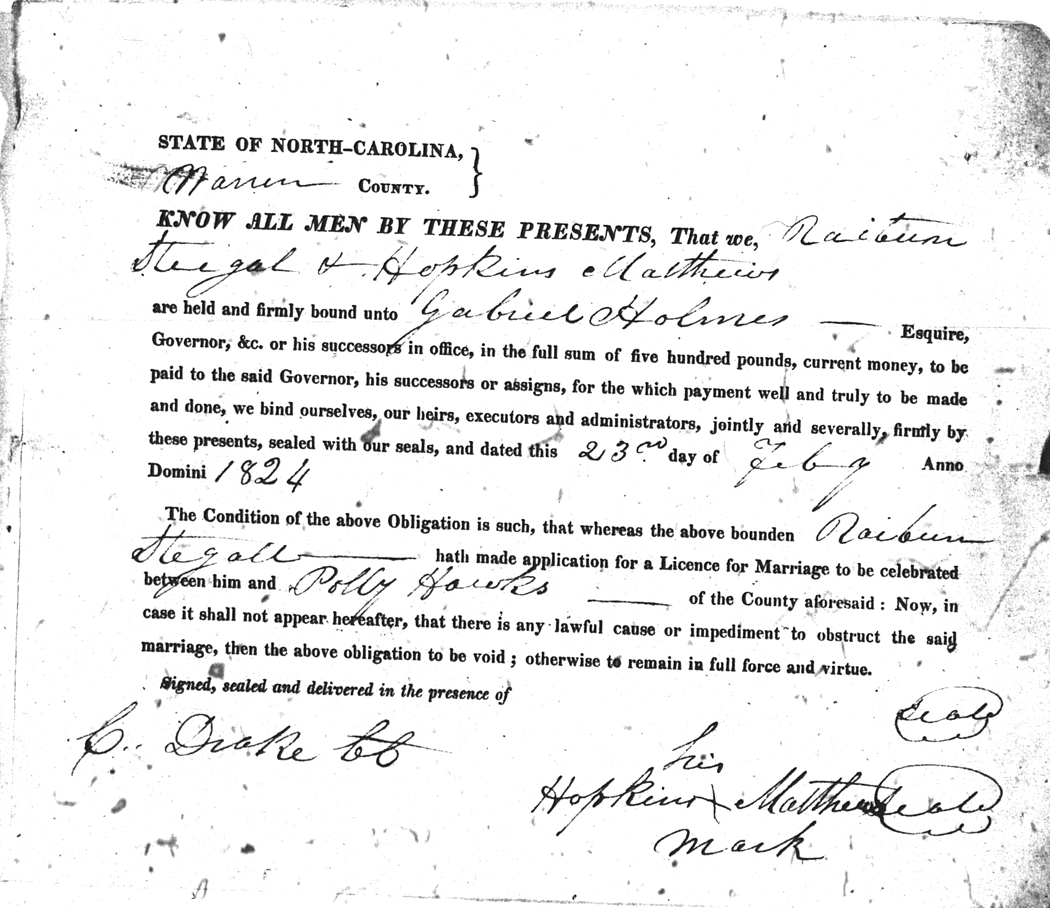 STATE OF NORTH-CAROLINA,
Warren COUNTY.
KNOW ALL MEN BY THESE PRESENTS, That we, Raiburn
Steegal & Hopkins Matthews
are held and firmly bound unto Gabriel Holmes — Esquire,
Governor, &c. or his successors in office, in the full sum of five hundred pounds, current money, to be
paid to the said Governor, his successors or assigns, for the which payment well and truly to be made
and done, we bind ourselves, our heirs, executors and administrators, jointly and severally, firmly by
these presents, sealed with our seals, and dated this 23rd day of Feby Anno
Domini 1824
The Condition of the above Obligation is such, that whereas the above bounden Raiburn
Stegall — hath made application for a Licence for Marriage to be celebrated
between him and Polly Hawks — of the County aforesaid: Now, in
case it shall not appear hereafter, that there is any lawful cause or impediment to obstruct the said
marriage, then the above obligation to be void; otherwise to remain in full force and virtue.
Signed, sealed and delivered in the presence of
Seal
C. Drake CC
his
Hopkins X Matthews Seal
mark